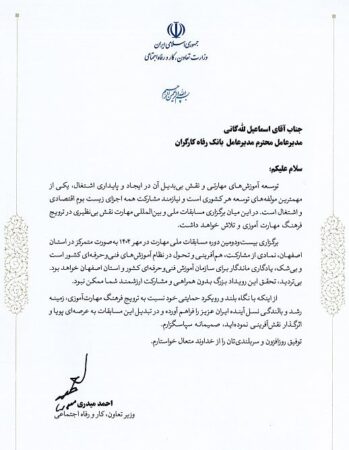 جمهوری اسلامی ایران
وزارت تعاون، کار و رفاه اجتماعی
بسم الله الرحمن الرحیم
جناب آقای اسماعیل لله‌گانی
مدیرعامل محترم مدیرعامل بانک رفاه کارگران
سلام علیکم؛
توسعه آموزش‌های مهارتی و نقش بی‌بدیل آن در ایجاد و پایداری اشتغال، یکی از
مهمترین مولفه‌های توسعه هر کشوری است و نیازمند مشارکت همه اجزای زیست بوم اقتصادی
و اشتغال است. در این میان برگزاری مسابقات ملی و بین‌المللی مهارت نقش بی‌نظیری در ترویج
فرهنگ مهارت آموزی و تلاش خواهد داشت.
برگزاری بیست‌ودومین دوره مسابقات ملی مهارت در مهر ۱۴۰۴ به‌صورت متمرکز در استان
اصفهان، نمادی از مشارکت، هم‌آفرینی و تحول در نظام آموزش‌های فنی‌وحرفه‌ای کشور است
و بی‌شک، یادگاری ماندگار برای سازمان آموزش فنی وحرفه‌ای کشور و استان اصفهان خواهد بود.
بی‌تردید، تحقق این رویداد بزرگ بدون همراهی و مشارکت ارزشمند شما ممکن نبود.
از اینکه با نگاه بلند و رویکرد حمایتی خود نسبت به ترویج فرهنگ مهارت‌آموزی، زمینه
رشد و بالندگی نسل آینده ایران عزیز را فراهم آورده و در تبدیل این مسابقات به عرصه‌ای پویا و
اثرگذار نقش‌آفرینی نموده‌اید، صمیمانه سپاسگزارم.
توفیق روزافزون و سربلندی‌تان را از خداوند متعال خواستارم.
احمد میدری
وزیر تعاون، کار و رفاه اجتماعی